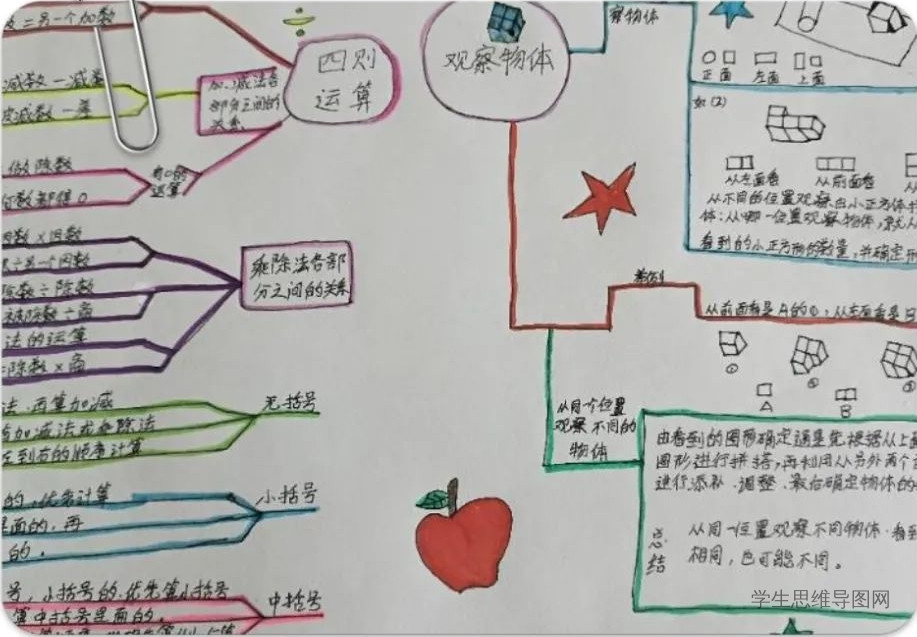 二另一个加数
四则
运算
减数
被减数 - 差
加、减法各
部分之间的
关系
做除数
有0的
运算
数都得0
因数×因数
另一个因数
除数÷除数
被除数÷商
法的运算
除数×商
乘除法各部
分之间的关系
法.再算加减
加减法或乘除法
到右的顺序计算
无括号
的,优先计算
里面的,再
的。
小括号
号,小括号的.优先算小括号
算中括号里面的.
中括号
观察物体
察物体
正面 左面 上面
如(2)
从左面看 从前面看
从不同的位置观察由小正方体
体:从哪一位置观察物体,就从
看到的小正方形的数量,并确定
从前面看是A的
① ②
A B
从同一位置
观察不同的
物体
由看到的图形确定
图形进行拼搭,再利用从另外两个
进行添补、调整.最后确定物体的
总结
从同一位置观察不同物体.看到
相同,也可能不同。
学生思维导图网